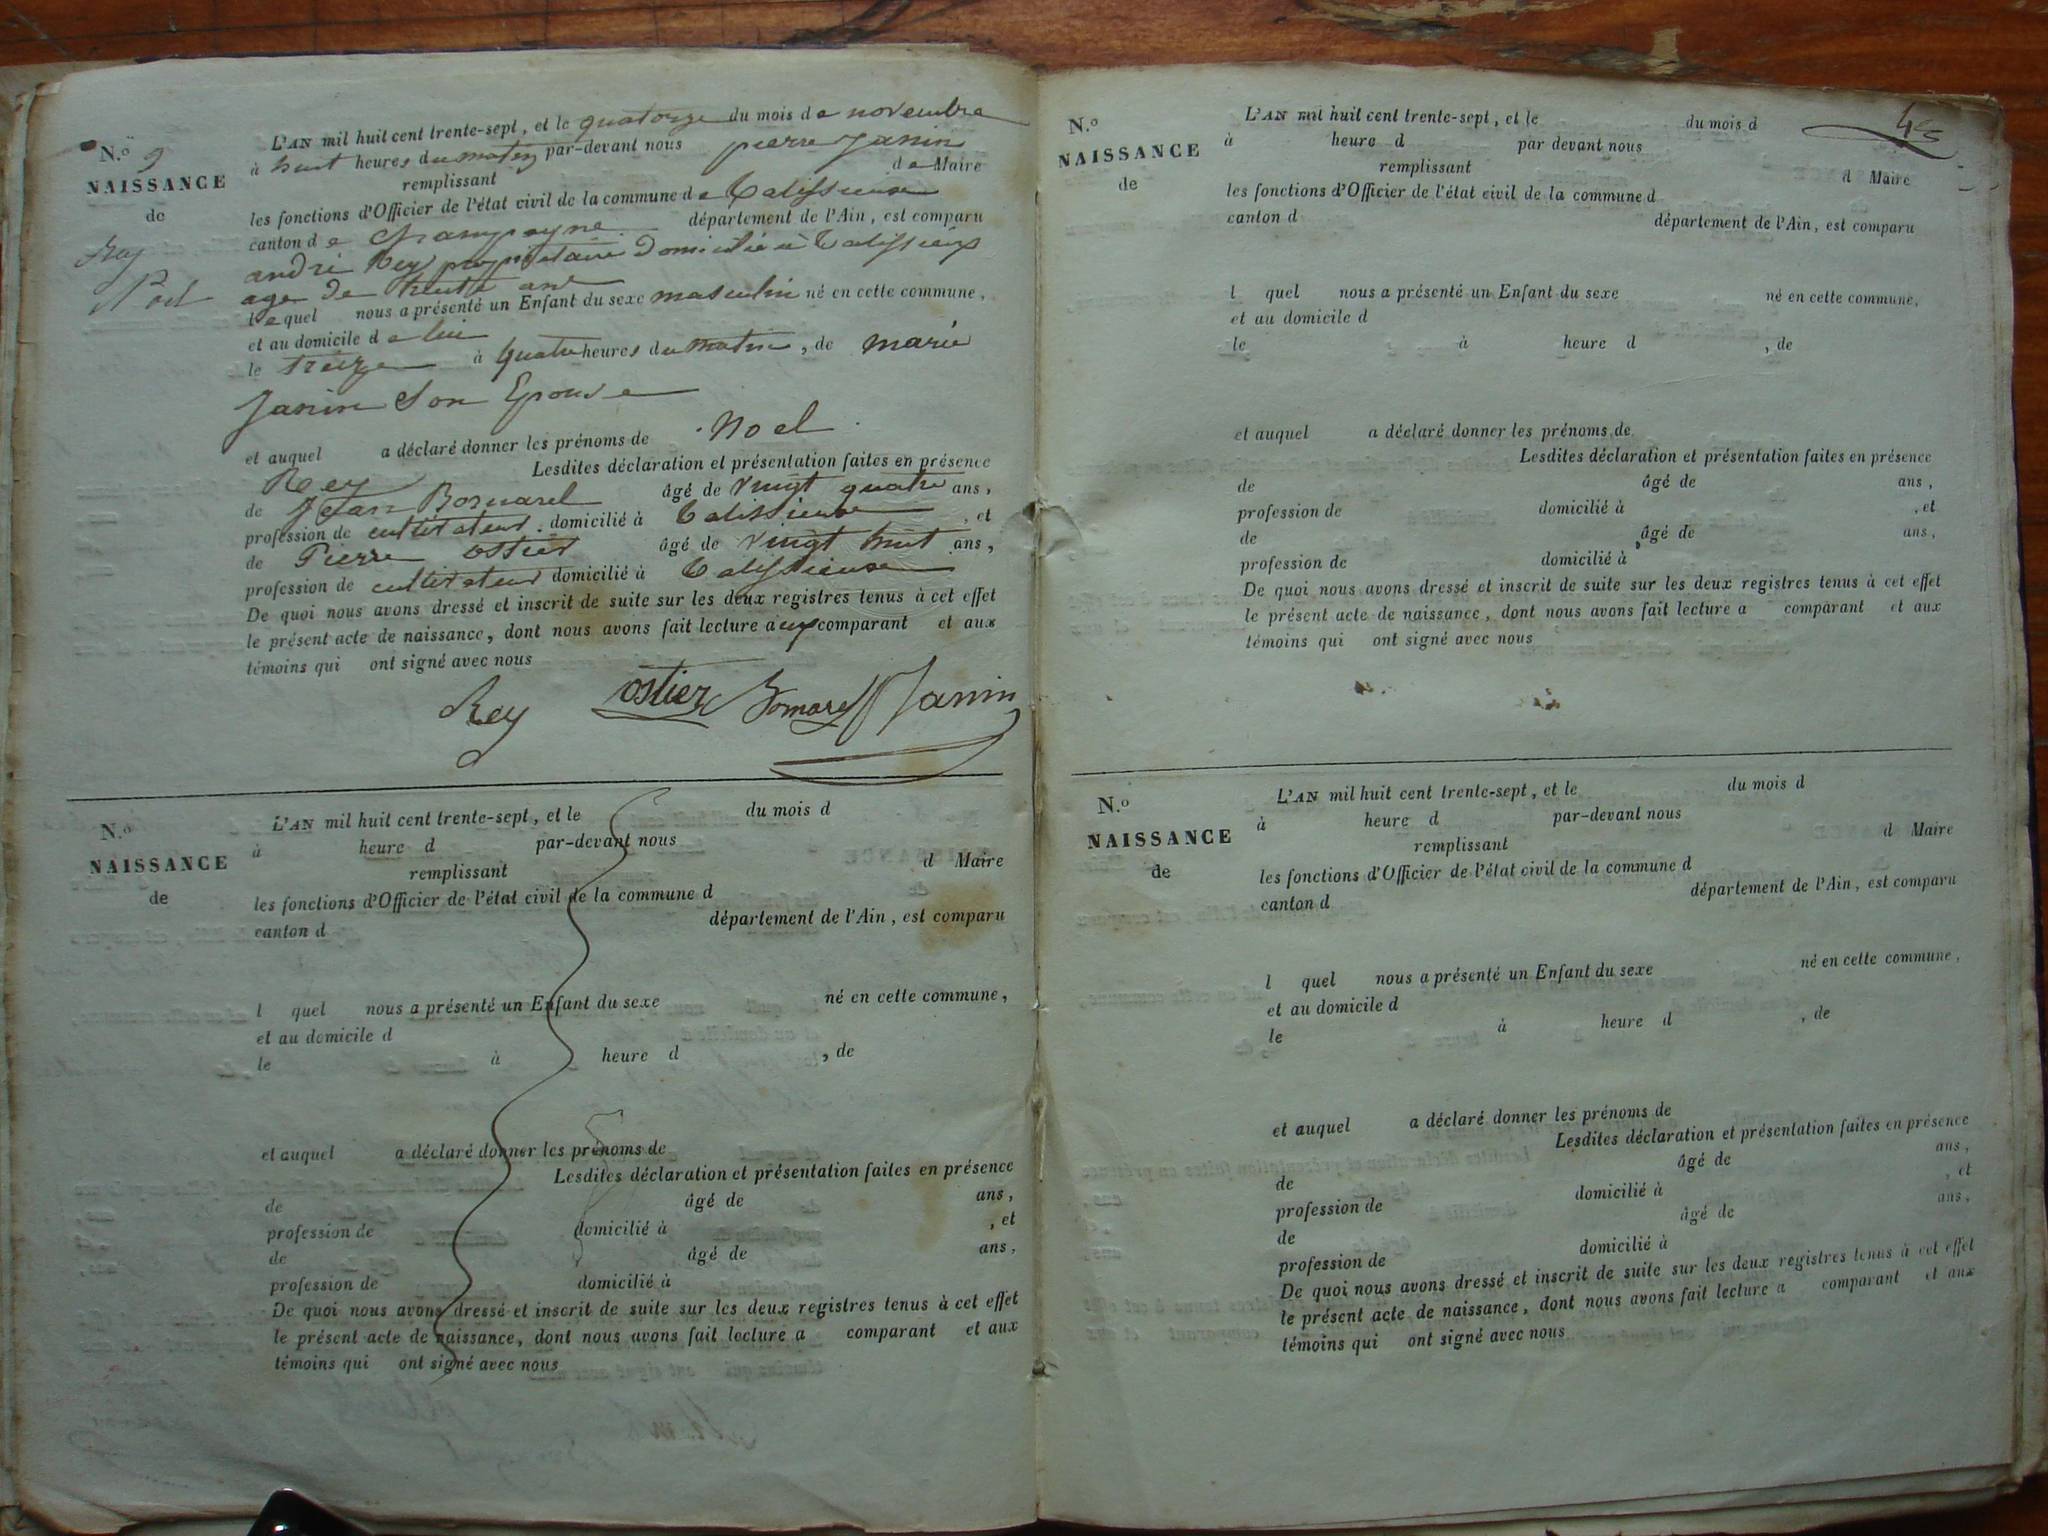 N.º 9
NAISSANCE
de
Rey
Noel
L'AN mil huit cent trente-sept, et le quatorze du mois de novembre
à huit heures du matin par-devant nous pierre Janin
remplissant de Maire
les fonctions d'Officier de l'état civil de la commune de talissieux
canton de Champagne département de l'Ain, est comparu
andré Rey propriétaire domicilié à talissieux
age de trente ans
lequel nous a présenté un Enfant du sexe masculin né en cette commune,
et au domicile de lui
le treize à quatre heures du matin, de marie
Janin Son Epouse
et auquel a déclaré donner les prénoms de Noel
Rey Lesdites déclaration et présentation faites en présence
de Jean Bornarel âgé de vingt quatre ans,
profession de cultivateur domicilié à talissieux, et
de Pierre ostier âgé de vingt huit ans,
profession de cultivateur domicilié à talissieux
De quoi nous avons dressé et inscrit de suite sur les deux registres tenus à cet effet
le présent acte de naissance, dont nous avons fait lecture aux comparant et aux
témoins qui ont signé avec nous
Rey ostier Janin
N.º
NAISSANCE
de
L'AN mil huit cent trente-sept, et le du mois d
à heure d par-devant nous
remplissant d Maire
les fonctions d'Officier de l'état civil de la commune d
canton d département de l'Ain, est comparu
l quel nous a présenté un Enfant du sexe né en cette commune,
et au domicile d
le à heure d , de
et auquel a déclaré donner les prénoms de
Lesdites déclaration et présentation faites en présence
de âgé de ans,
profession de domicilié à , et
de âgé de ans,
profession de domicilié à
De quoi nous avons dressé et inscrit de suite sur les deux registres tenus à cet effet
le présent acte de naissance, dont nous avons fait lecture a comparant et aux
témoins qui ont signé avec nous
N.º
NAISSANCE
de
L'AN mil huit cent trente-sept, et le du mois d
à heure d par devant nous
remplissant d Maire
les fonctions d'Officier de l'état civil de la commune d
canton d département de l'Ain, est comparu
l quel nous a présenté un Enfant du sexe né en cette commune,
et au domicile d
le à heure d , de
et auquel a déclaré donner les prénoms de
Lesdites déclaration et présentation faites en présence
de âgé de ans,
profession de domicilié à , et
de âgé de ans,
profession de domicilié à
De quoi nous avons dressé et inscrit de suite sur les deux registres tenus à cet effet
le présent acte de naissance, dont nous avons fait lecture a comparant et aux
témoins qui ont signé avec nous
N.º
NAISSANCE
de
L'AN mil huit cent trente-sept, et le du mois d
à heure d par-devant nous
remplissant d Maire
les fonctions d'Officier de l'état civil de la commune d
canton d département de l'Ain, est comparu
l quel nous a présenté un Enfant du sexe né en cette commune,
et au domicile d
le à heure d , de
et auquel a déclaré donner les prénoms de
Lesdites déclaration et présentation faites en présence
de âgé de ans,
profession de domicilié à , et
de âgé de ans,
profession de domicilié à
De quoi nous avons dressé et inscrit de suite sur les deux registres tenus à cet effet
le présent acte de naissance, dont nous avons fait lecture a comparant et aux
témoins qui ont signé avec nous